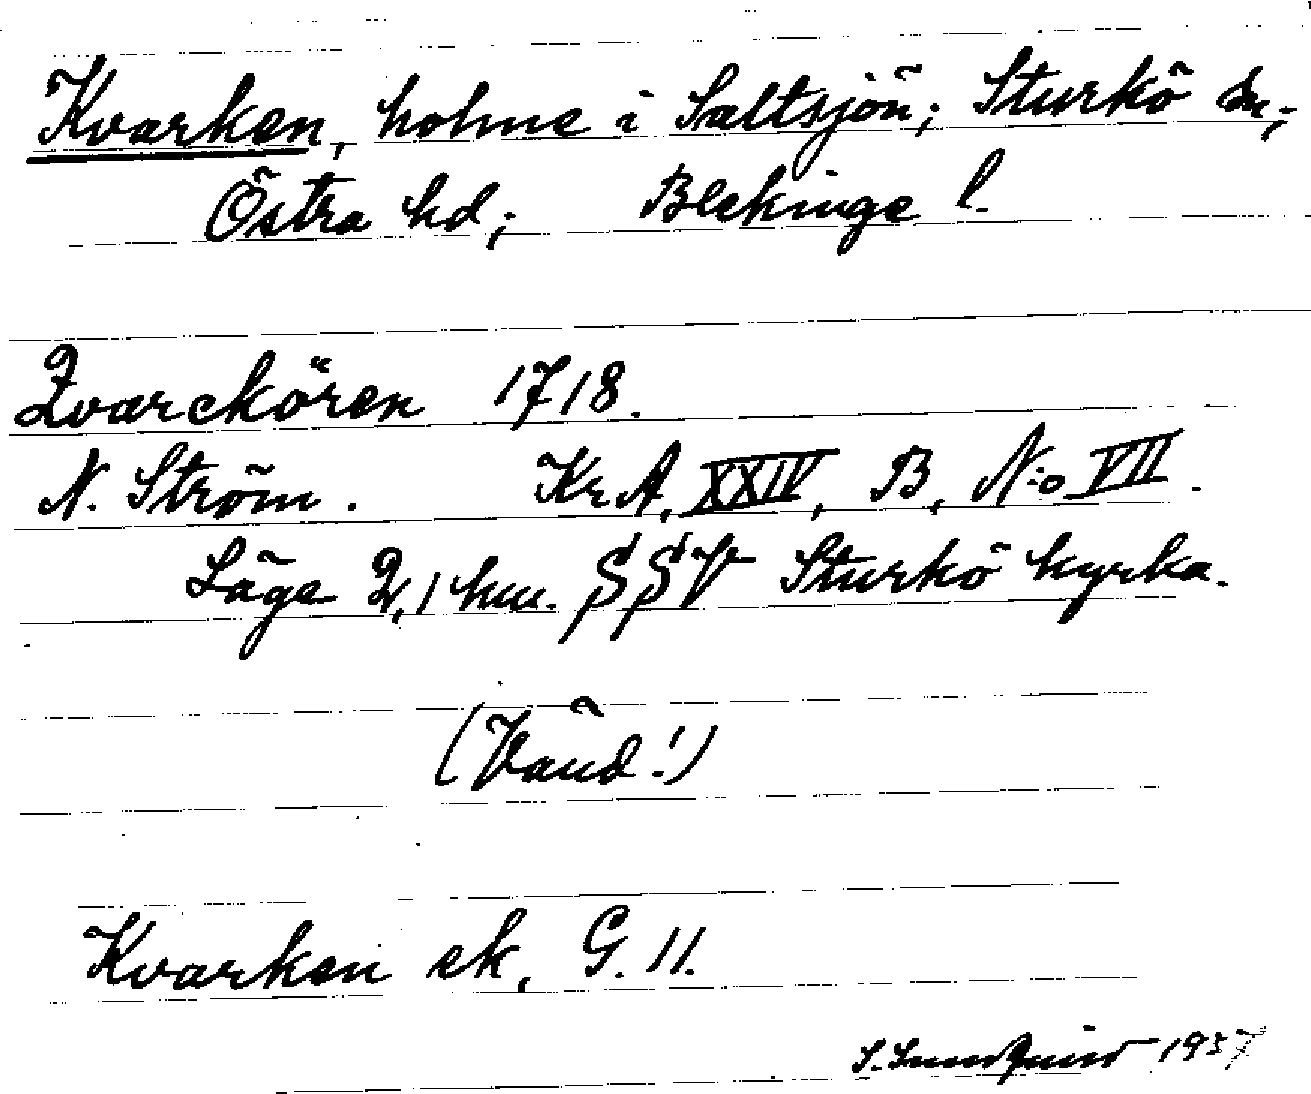 Kvarken, holme i Saltsjön; Sturkö sn;
Östra hd; Blekinge l.
Qvarckören 1718.
N. Ström. Kr.A, XXIV, B, N:o VII.
Läge 2,1 km. SSV Sturkö kyrka.
(Vänd!)
Kvarken ek, G. 11.
1937